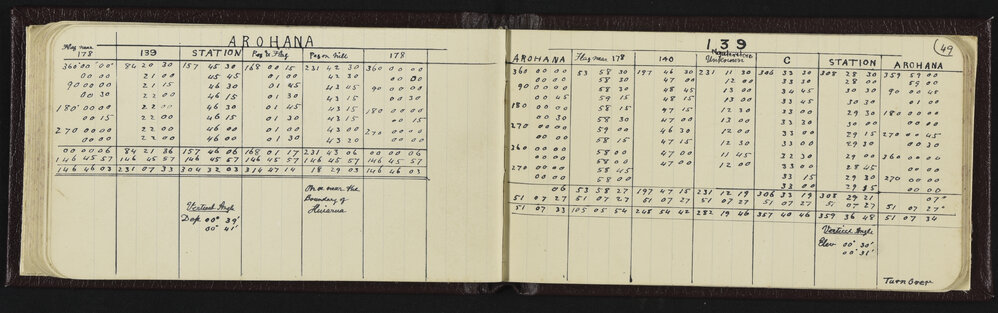 AROHANA
Flag near 178 139 STATION Peg & Flag Peg on hill 178
360 00 00 84 20 30 157 45 30 168 00 15 231 42 30 360 00 00
00 00 21 00 45 45 01 00 42 30 00 00
90 00 00 21 15 46 30 01 45 43 45 90 00 00
00 30 22 00 46 15 01 30 43 15 00 30
180 00 00 22 00 46 30 01 45 43 15 180 00 00
00 15 22 00 46 15 01 30 43 00 00 15
270 00 00 22 00 46 00 01 00 43 00 270 00 00
00 00 22 00 46 00 01 30 43 20 00 00
00 00 06 84 21 36 157 46 06 168 01 17 231 43 06 00 00 06
146 45 57 146 45 57 146 45 57 146 45 57 146 45 57
146 46 03 231 07 33 304 32 03 314 47 14 18 29 03 146 46 03
Vertical Angle
Dep. 00° 39'
00° 41'
On or near the
Boundary of
49
139
AROHANA Flag near 178 140 Unknown C STATION AROHANA
360 00 00 53 58 30 197 46 30 231 11 30 306 33 30 308 28 30 359 59 00
00 00 58 30 47 00 12 00 33 30 28 00 59 00
90 00 00 58 30 48 45 13 00 34 45 30 30 90 00 40
00 45 59 15 48 15 13 00 33 45 30 30 01 00
180 00 00 58 15 47 15 12 30 33 00 29 30 180 00 00
00 30 58 30 47 00 12 00 33 00 30 00 00 00
270 00 00 59 00 46 30 12 00 33 00 29 15 270 00 45
00 00 58 15 47 15 12 30 33 00 29 30 00 00
360 00 00 58 00 47 00 11 45 32 30 29 00 360 00 00
00 00 58 00 47 00 12 00 33 00 28 45 00 00
270 00 00 58 45 33 15 29 30 270 00 00
00 00 58 00 33 00 00 00
06 53 58 27 197 47 15 231 12 19 306 33 19 308 29 21 07
51 07 27 51 07 27 51 07 27 51 07 27 51 07 27 51 07 27 51 07 27
51 07 33 105 05 54 248 54 42 282 19 46 357 40 46 359 36 48 51 07 34
Vertical Angle
Elev 00° 30'
00° 31'
Turn Over